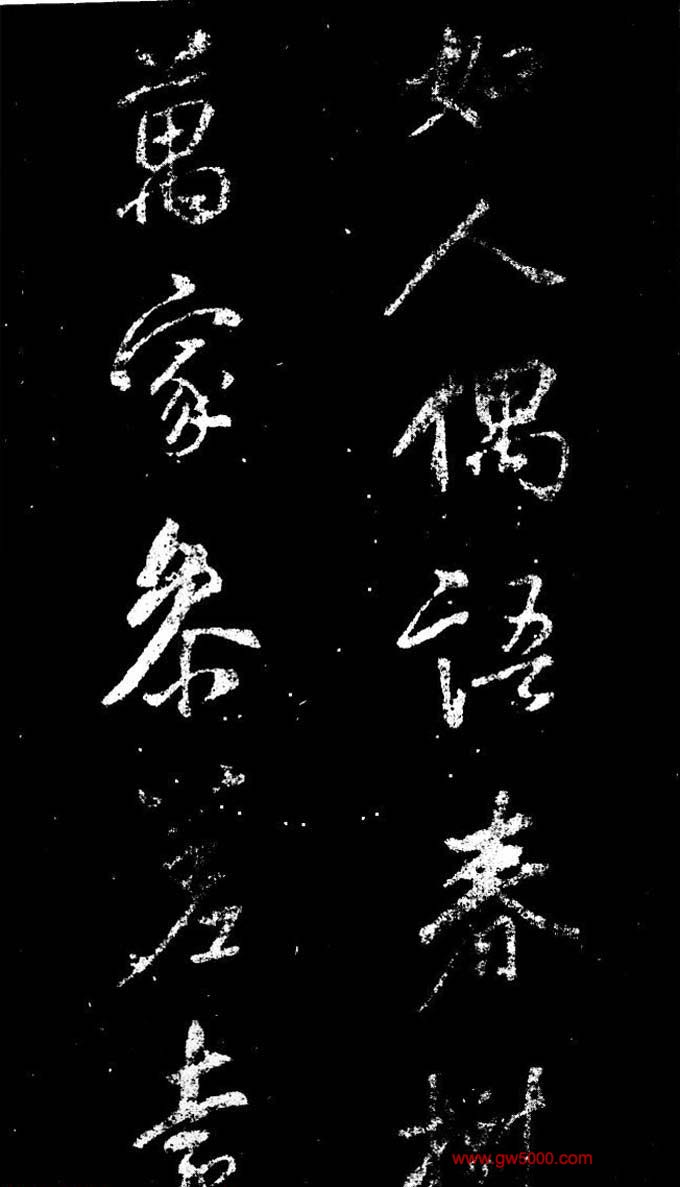 如人偶語春樹
萬家參差
www.gw5000.com